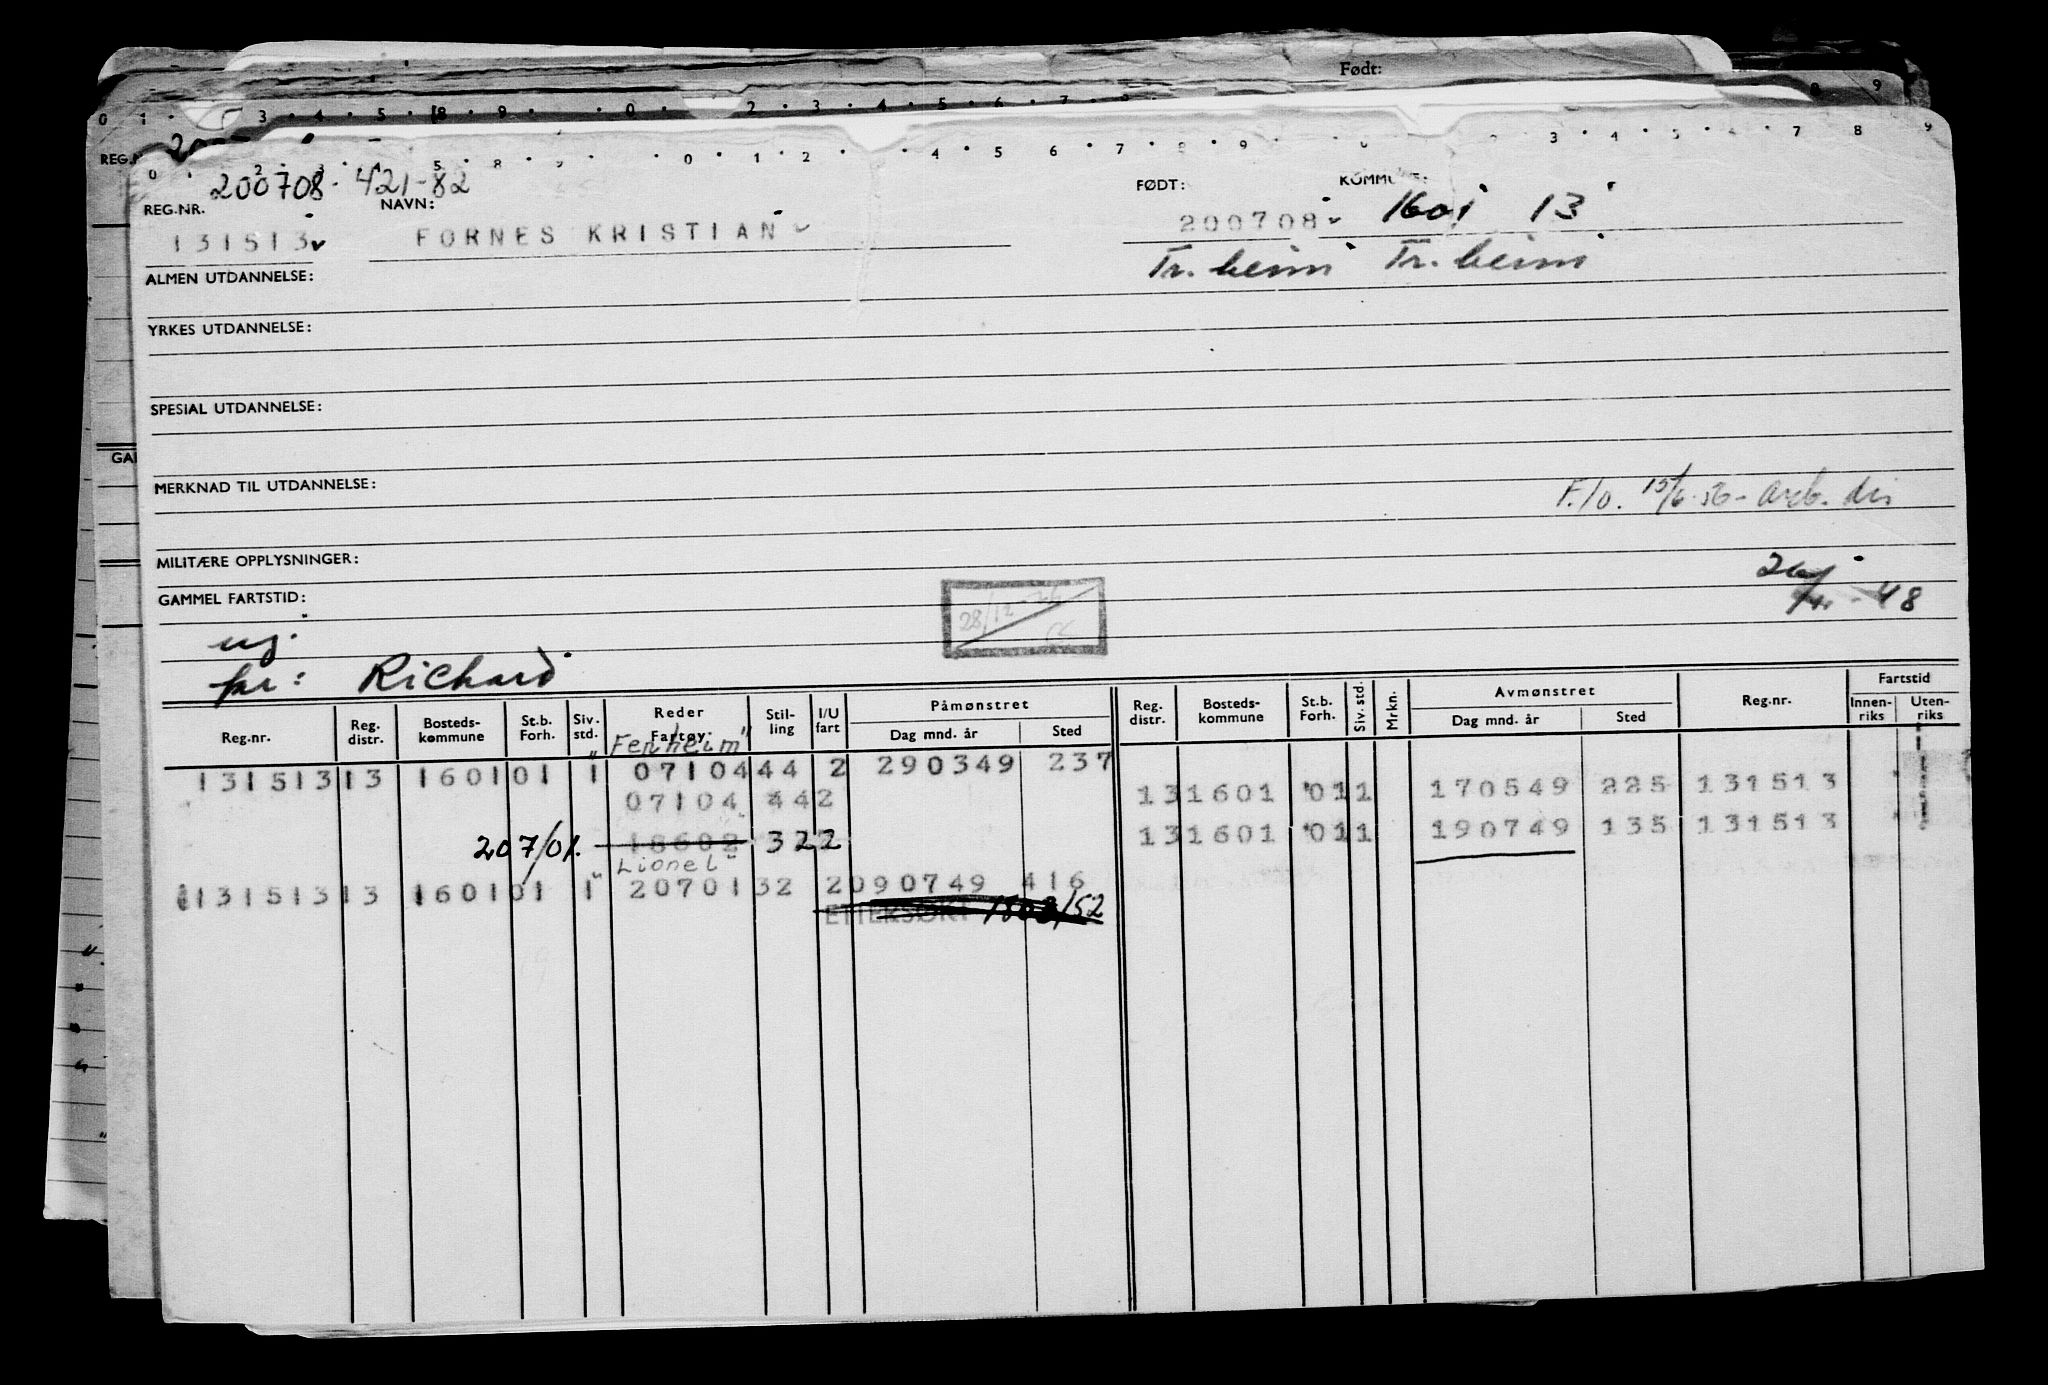 Født:
REG.N
200708-421-82
REG.NR. NAVN: FØDT: KOMMUNE:
131513 FORNES KRISTIAN 200708 1601 13
Tr.heim Tr.heim
ALMEN UTDANNELSE:
YRKES UTDANNELSE:
SPESIAL UTDANNELSE:
MERKNAD TIL UTDANNELSE:
F./o. 15/6-56- arb. dir
MILITÆRE OPPLYSNINGER:
GAMMEL FARTSTID:
ug.
far: Richard
Reg.nr. Reg. distr. Bosteds-kommune St.b. Forh. Siv. std. Reder Fartøy. Stil-ling I/U fart Påmønstret Dag mnd. år Sted Reg. distr. Bosteds-kommune St.b. Forh. Siv. std. Mrkn. Avmønstret Dag mnd. år Sted Reg.nr. Fartstid Innen-riks Uten-riks
"Fernheim"
131513 13 1601 01 1 07104 44 2 290349 237
07104 44 2 13 1601 01 1 170549 225 131513
207/01. 18602 32 2 13 1601 01 1 190749 135 131513
"Lionel"
131513 13 1601 01 1 20701 32 2 090749 416
ETTERSØKT 1503/52